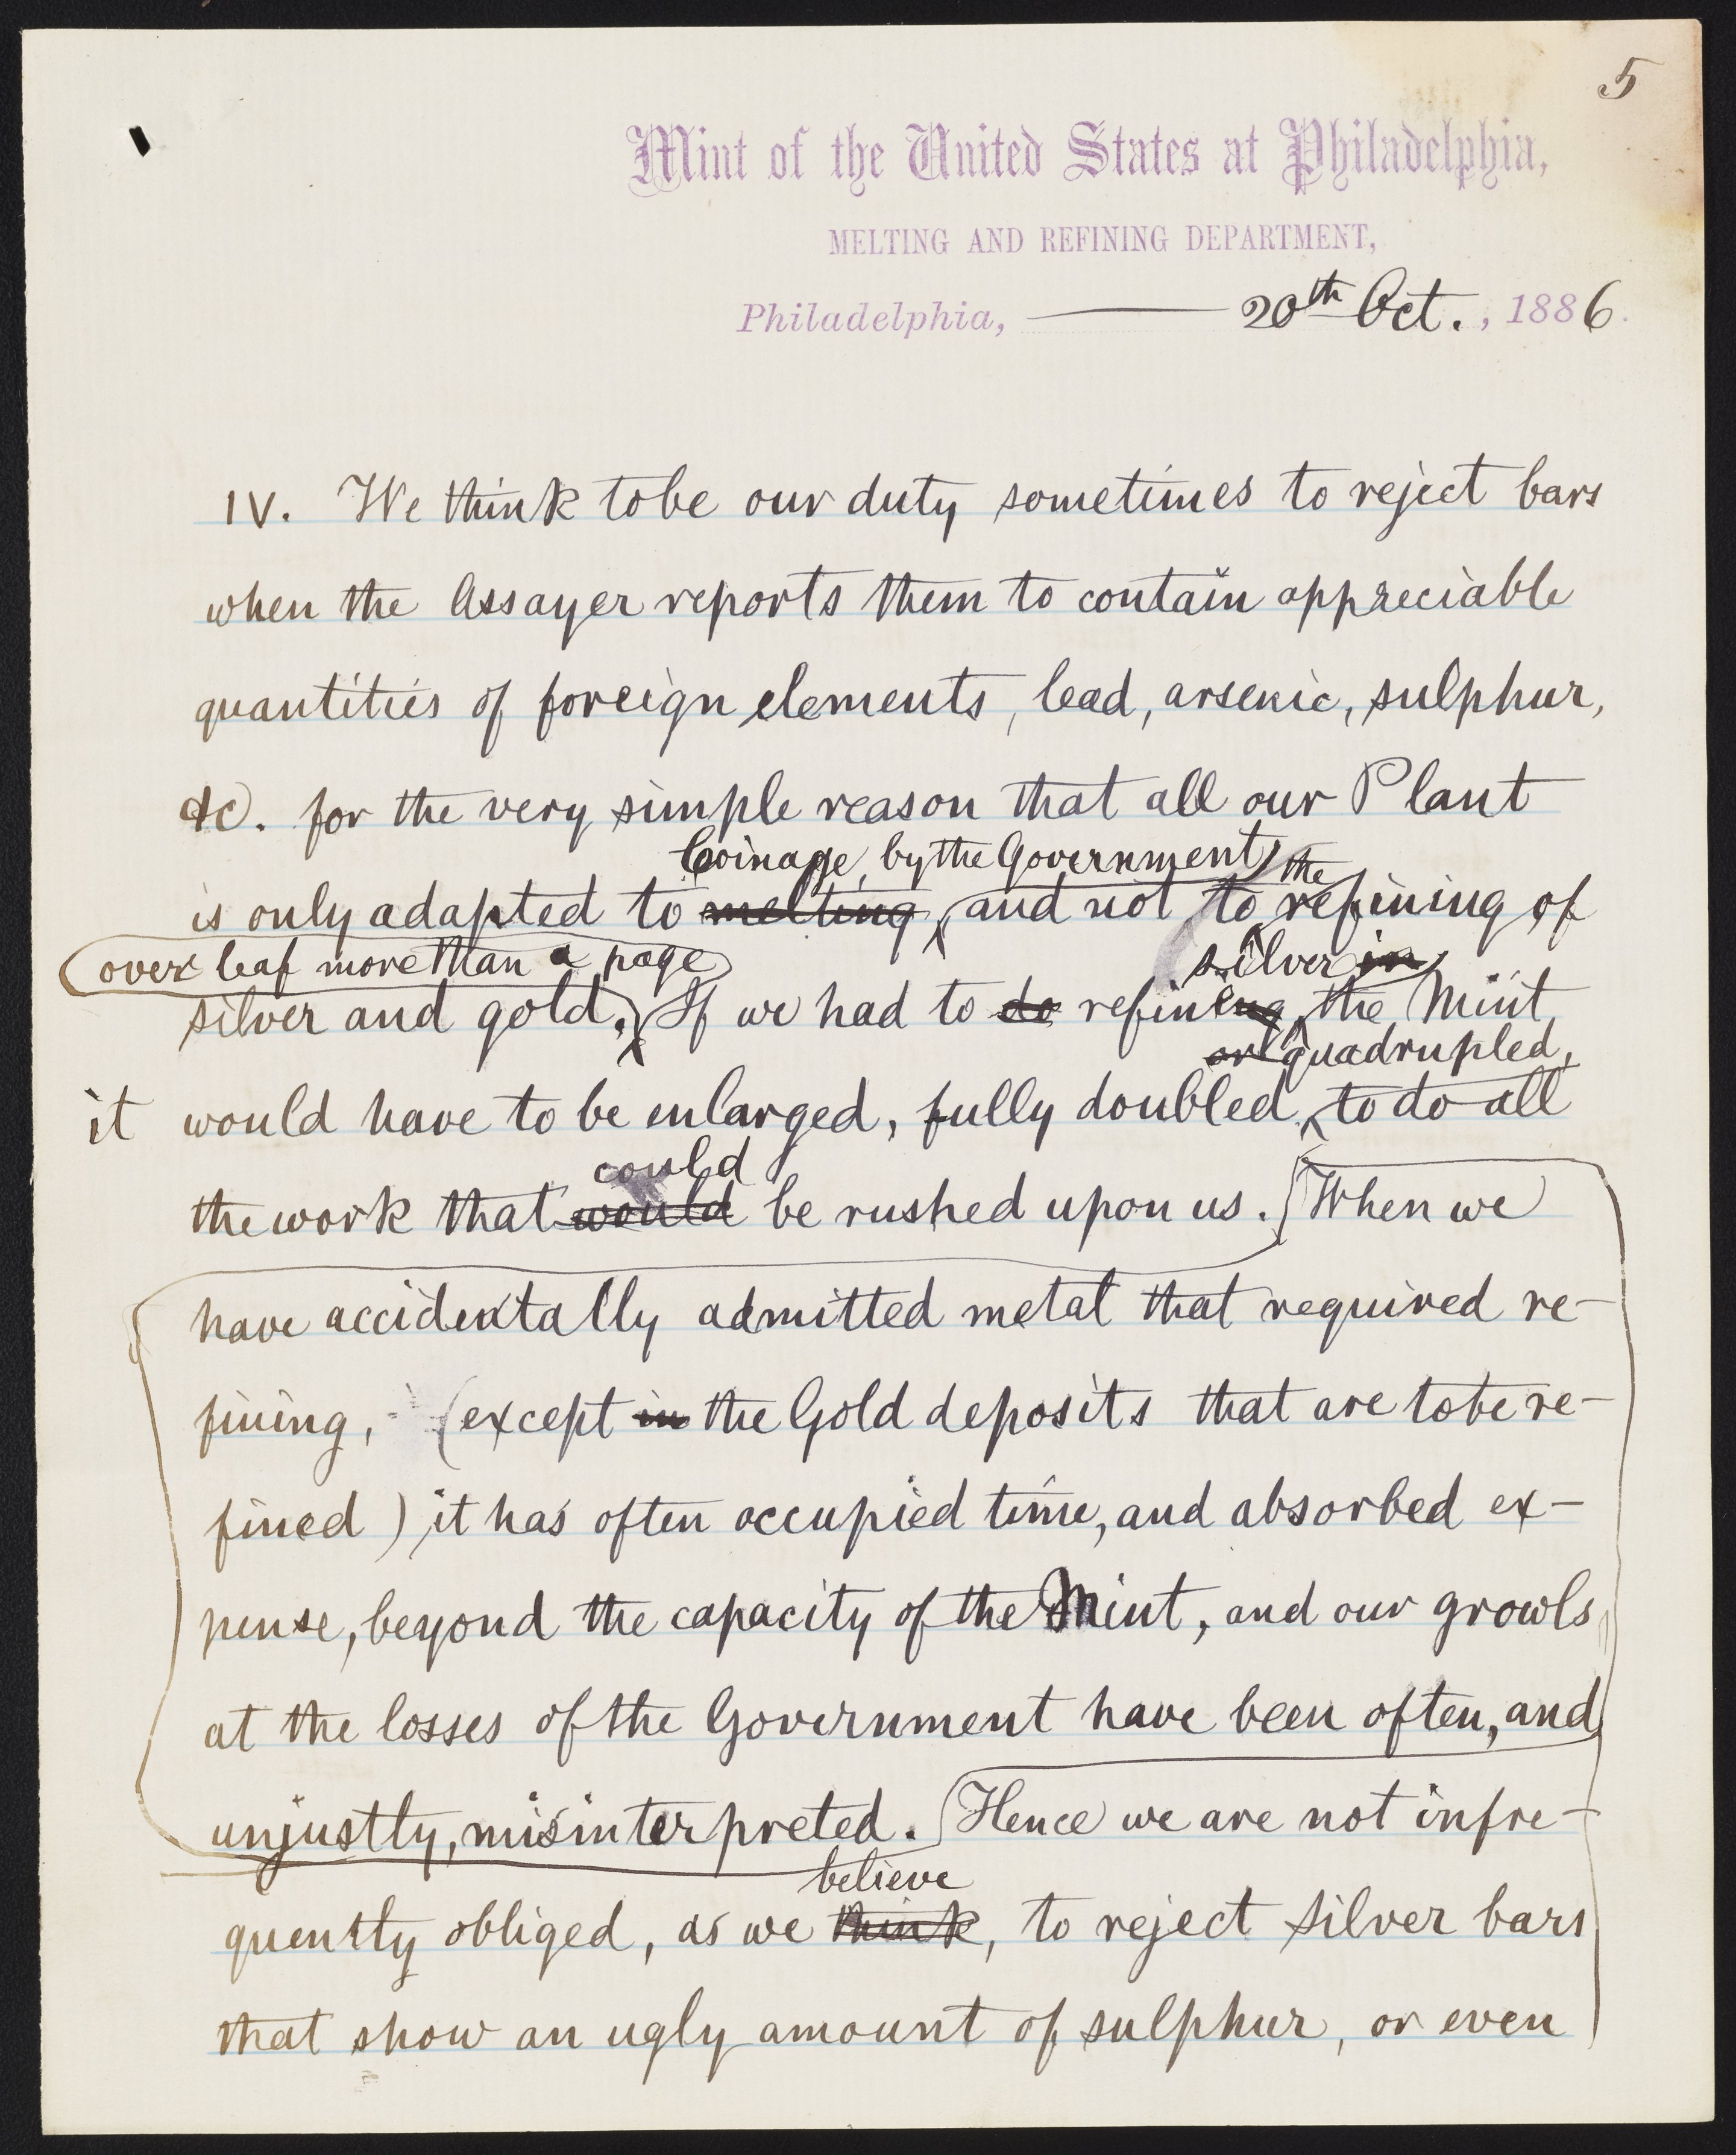 5
Mint of the United States at Philadelphia,
MELTING AND REFINING DEPARTMENT,
Philadelphia, 20th Oct., 1886.
IV. We think to be our duty sometimes to reject bars
when the Assayer reports them to contain appreciable
quantities of foreign elements, lead, arsenic, sulphur,
&c. for the very simple reason that all our Plant
Coinage, by the Government, the
is only adapted to melting, and not to refining of
over leaf more than a page
silver in
silver and gold. If we had to do refining the Mint,
or quadrupled,
it would have to be enlarged, fully doubled, to do all
could
the work that would be rushed upon us. When we
have accidentally admitted metal that required re-
fining, (except in the Gold deposits that are to be re-
fined) it has often occupied time, and absorbed ex-
pense, beyond the capacity of the Mint, and our growls
at the losses of the Government have been often, and
unjustly, misinterpreted. Hence we are not infre-
believe
quently obliged, as we think, to reject silver bars
that show an ugly amount of sulphur, or even